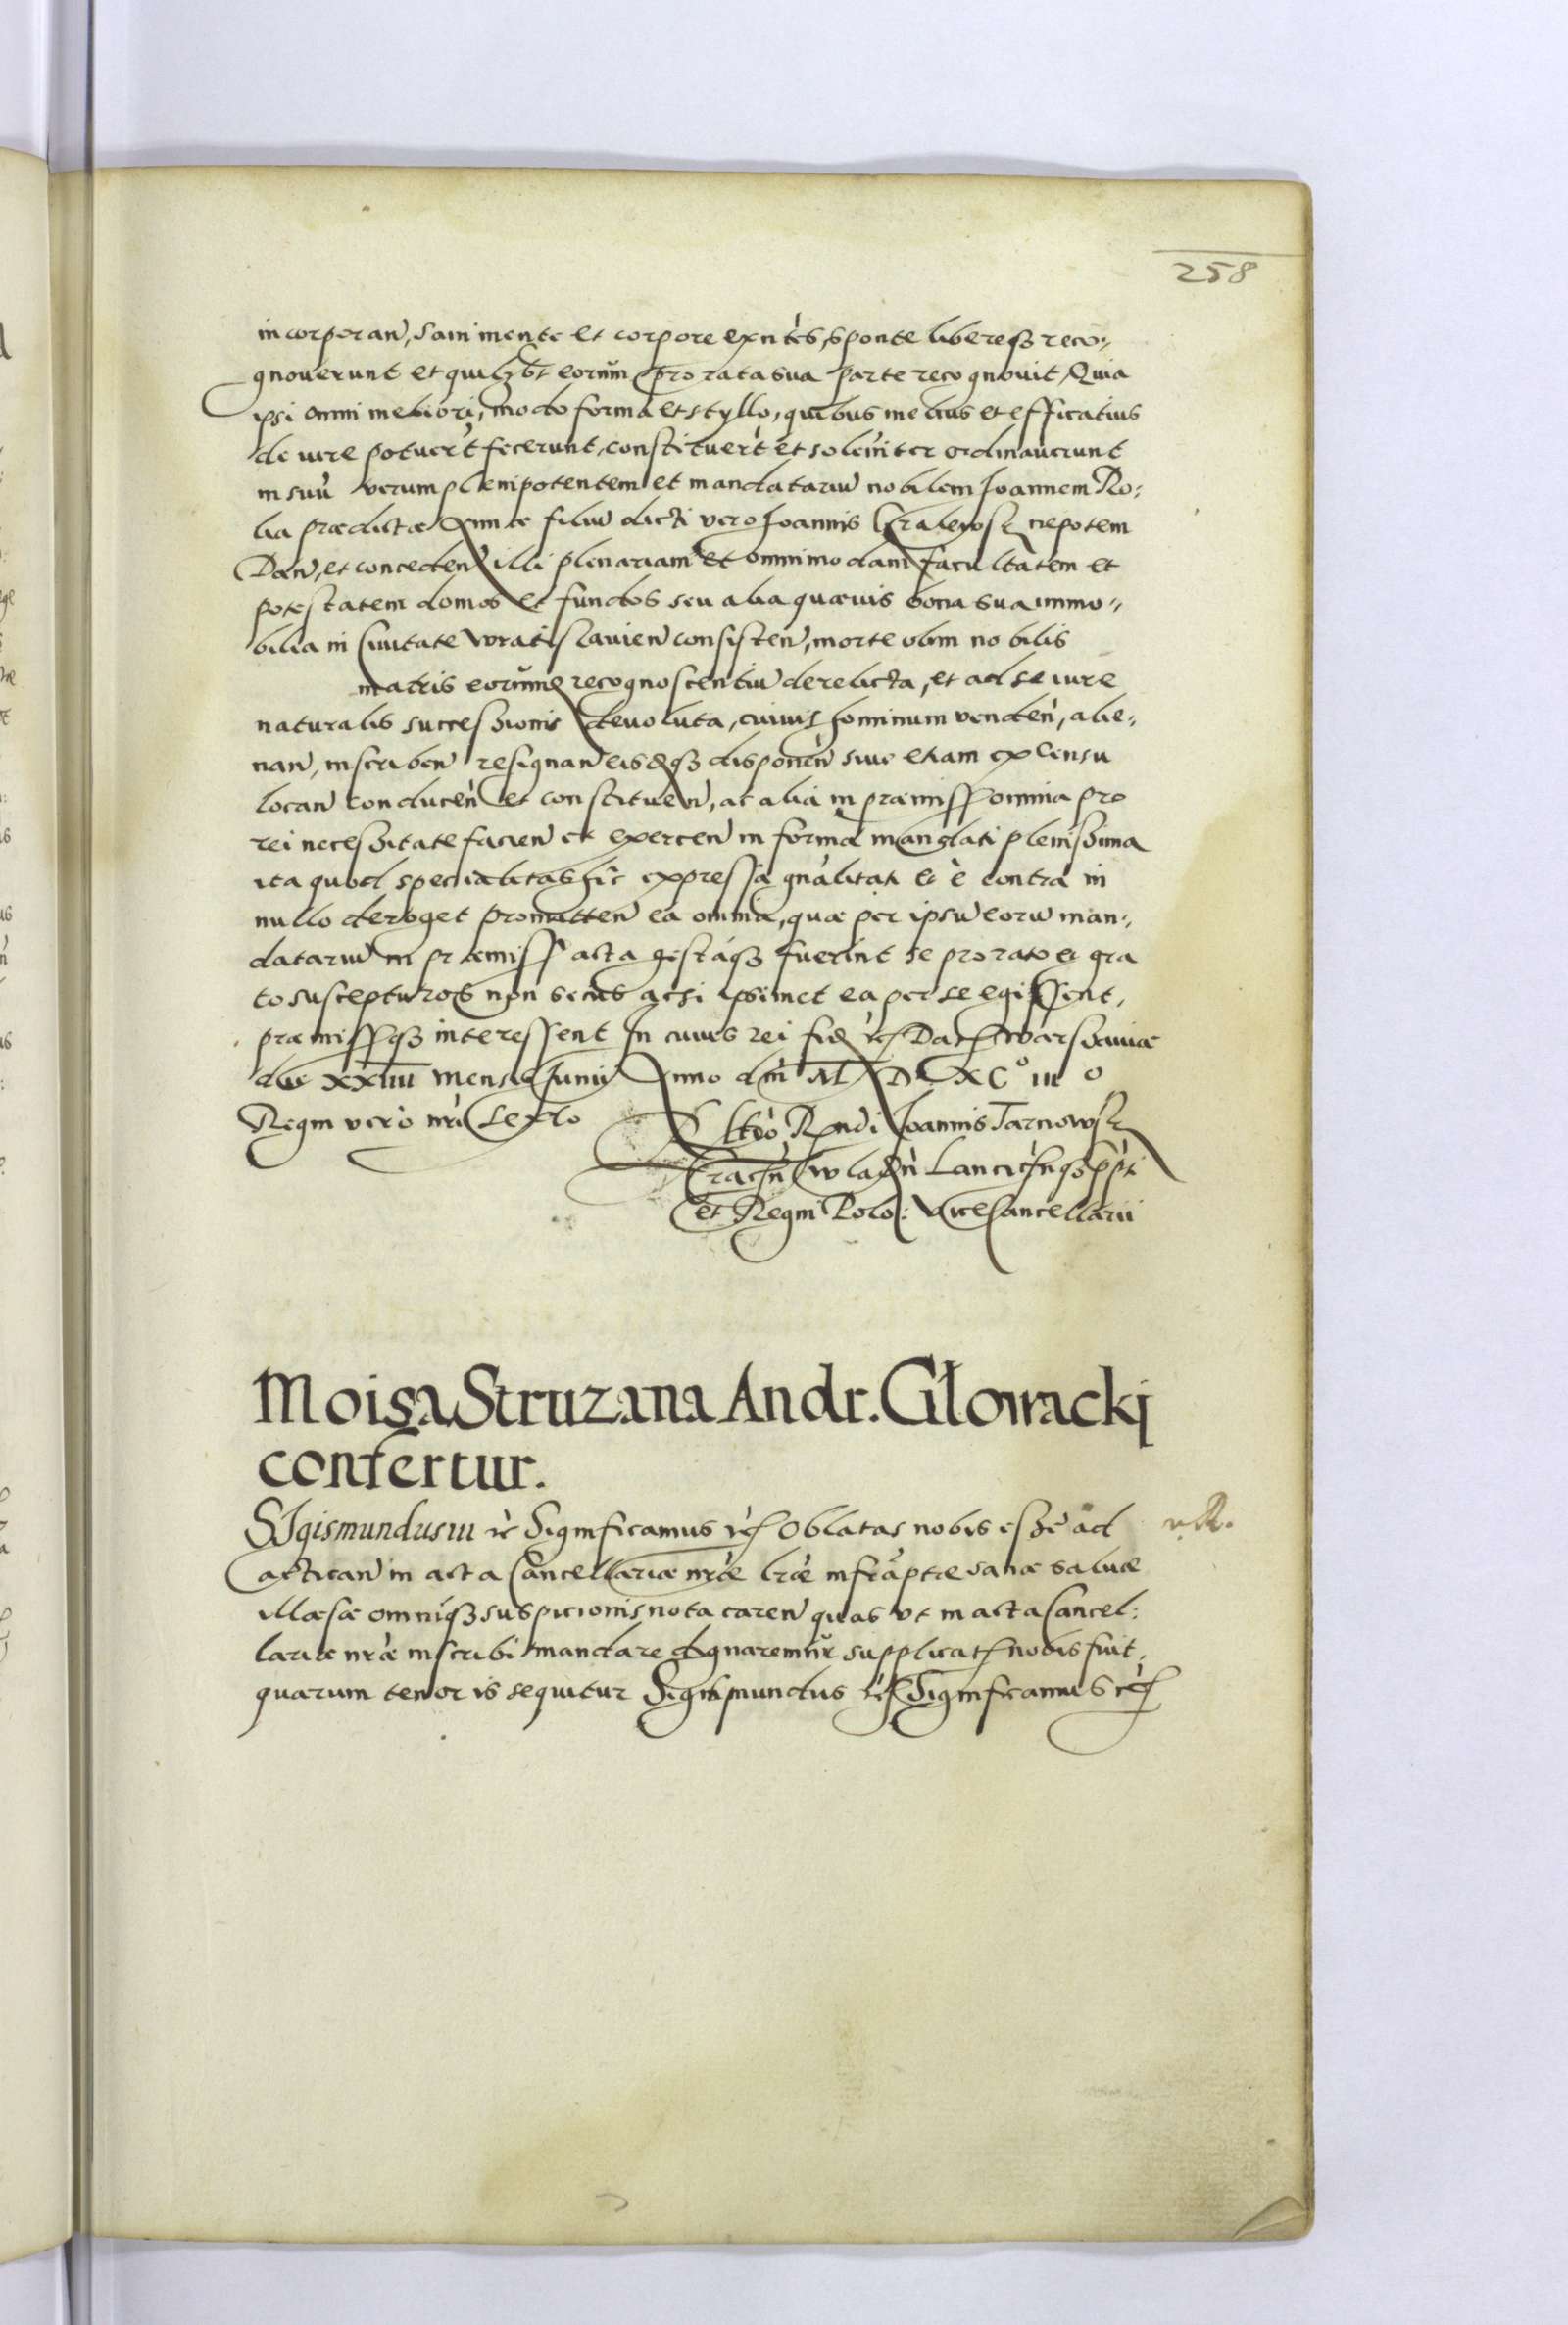 258
incorporan, sani mente et corpore exntes, sponte libereqz reco⸗
gnoverunt et quilzbt eorum pro rata sua parte recognovit, Quia
ipsi omni meliori, modo forma et styllo, quibus melius et efficatius
de iure potuert fecerunt, constituert et solenniter ordinaverunt
in suu verum plenipotentem et mandatariu nobilem Joannem Ro:
lia prædictæ filiu dicti vero Joannis nepotem
Dan, et conceden illi plenariam et omnimodam facultatem et
potestatem domos et fundos seu alia quævis bona sua immo⸗
bilia in Civitate Wratislavien consisten, morte olim nobilis
matris eorumq recognoscentiu derelicta, et ad se iure
naturalis successionis devoluta, cuivis hominum venden, alie⸗
nan, inscriben resignan eisdqz disponen sive etiam ex censu
locan conducen et constituen, ac alia in præmiss omnia pro
rei necessitate facien et exercen in forma mandati plenissima
ita quod specialitas hic expressa gnalitati et è contra in
nullo deroget promitten ea omnia, quæ per ipsu eoru man⸗
datariu in præmiss acta gestaqz fuerint se pro rato et gra
to suscepturos non secus acsi ipsimet ea per se egissent,
præmissqz interessent In cuius rei fid etc Dat Warsaviæ
die XXIIII mensis Junij Anno dni M D XC° III°
Regni vero nri Sexto
Rndi Joannis Tarnowsk
Cracn Wladn Lancicnqz ppti
et Regni Polo: ViceCancellarii
Moisa Struzana Andr. Glowackj
confertur.
Sigismundus III etc Significamus etc Oblatas nobis esse ad
actican in acta Cancellariæ nræ lras infraptas sanas salvas
illæsas omniqz suspicionis nota caren quas ut in acta Cancel:
lariæ nræ inscribi mandare dignaremur supplicat nobis fuit,
quarum tenor is sequitur Sigismundus etc Significamus etc